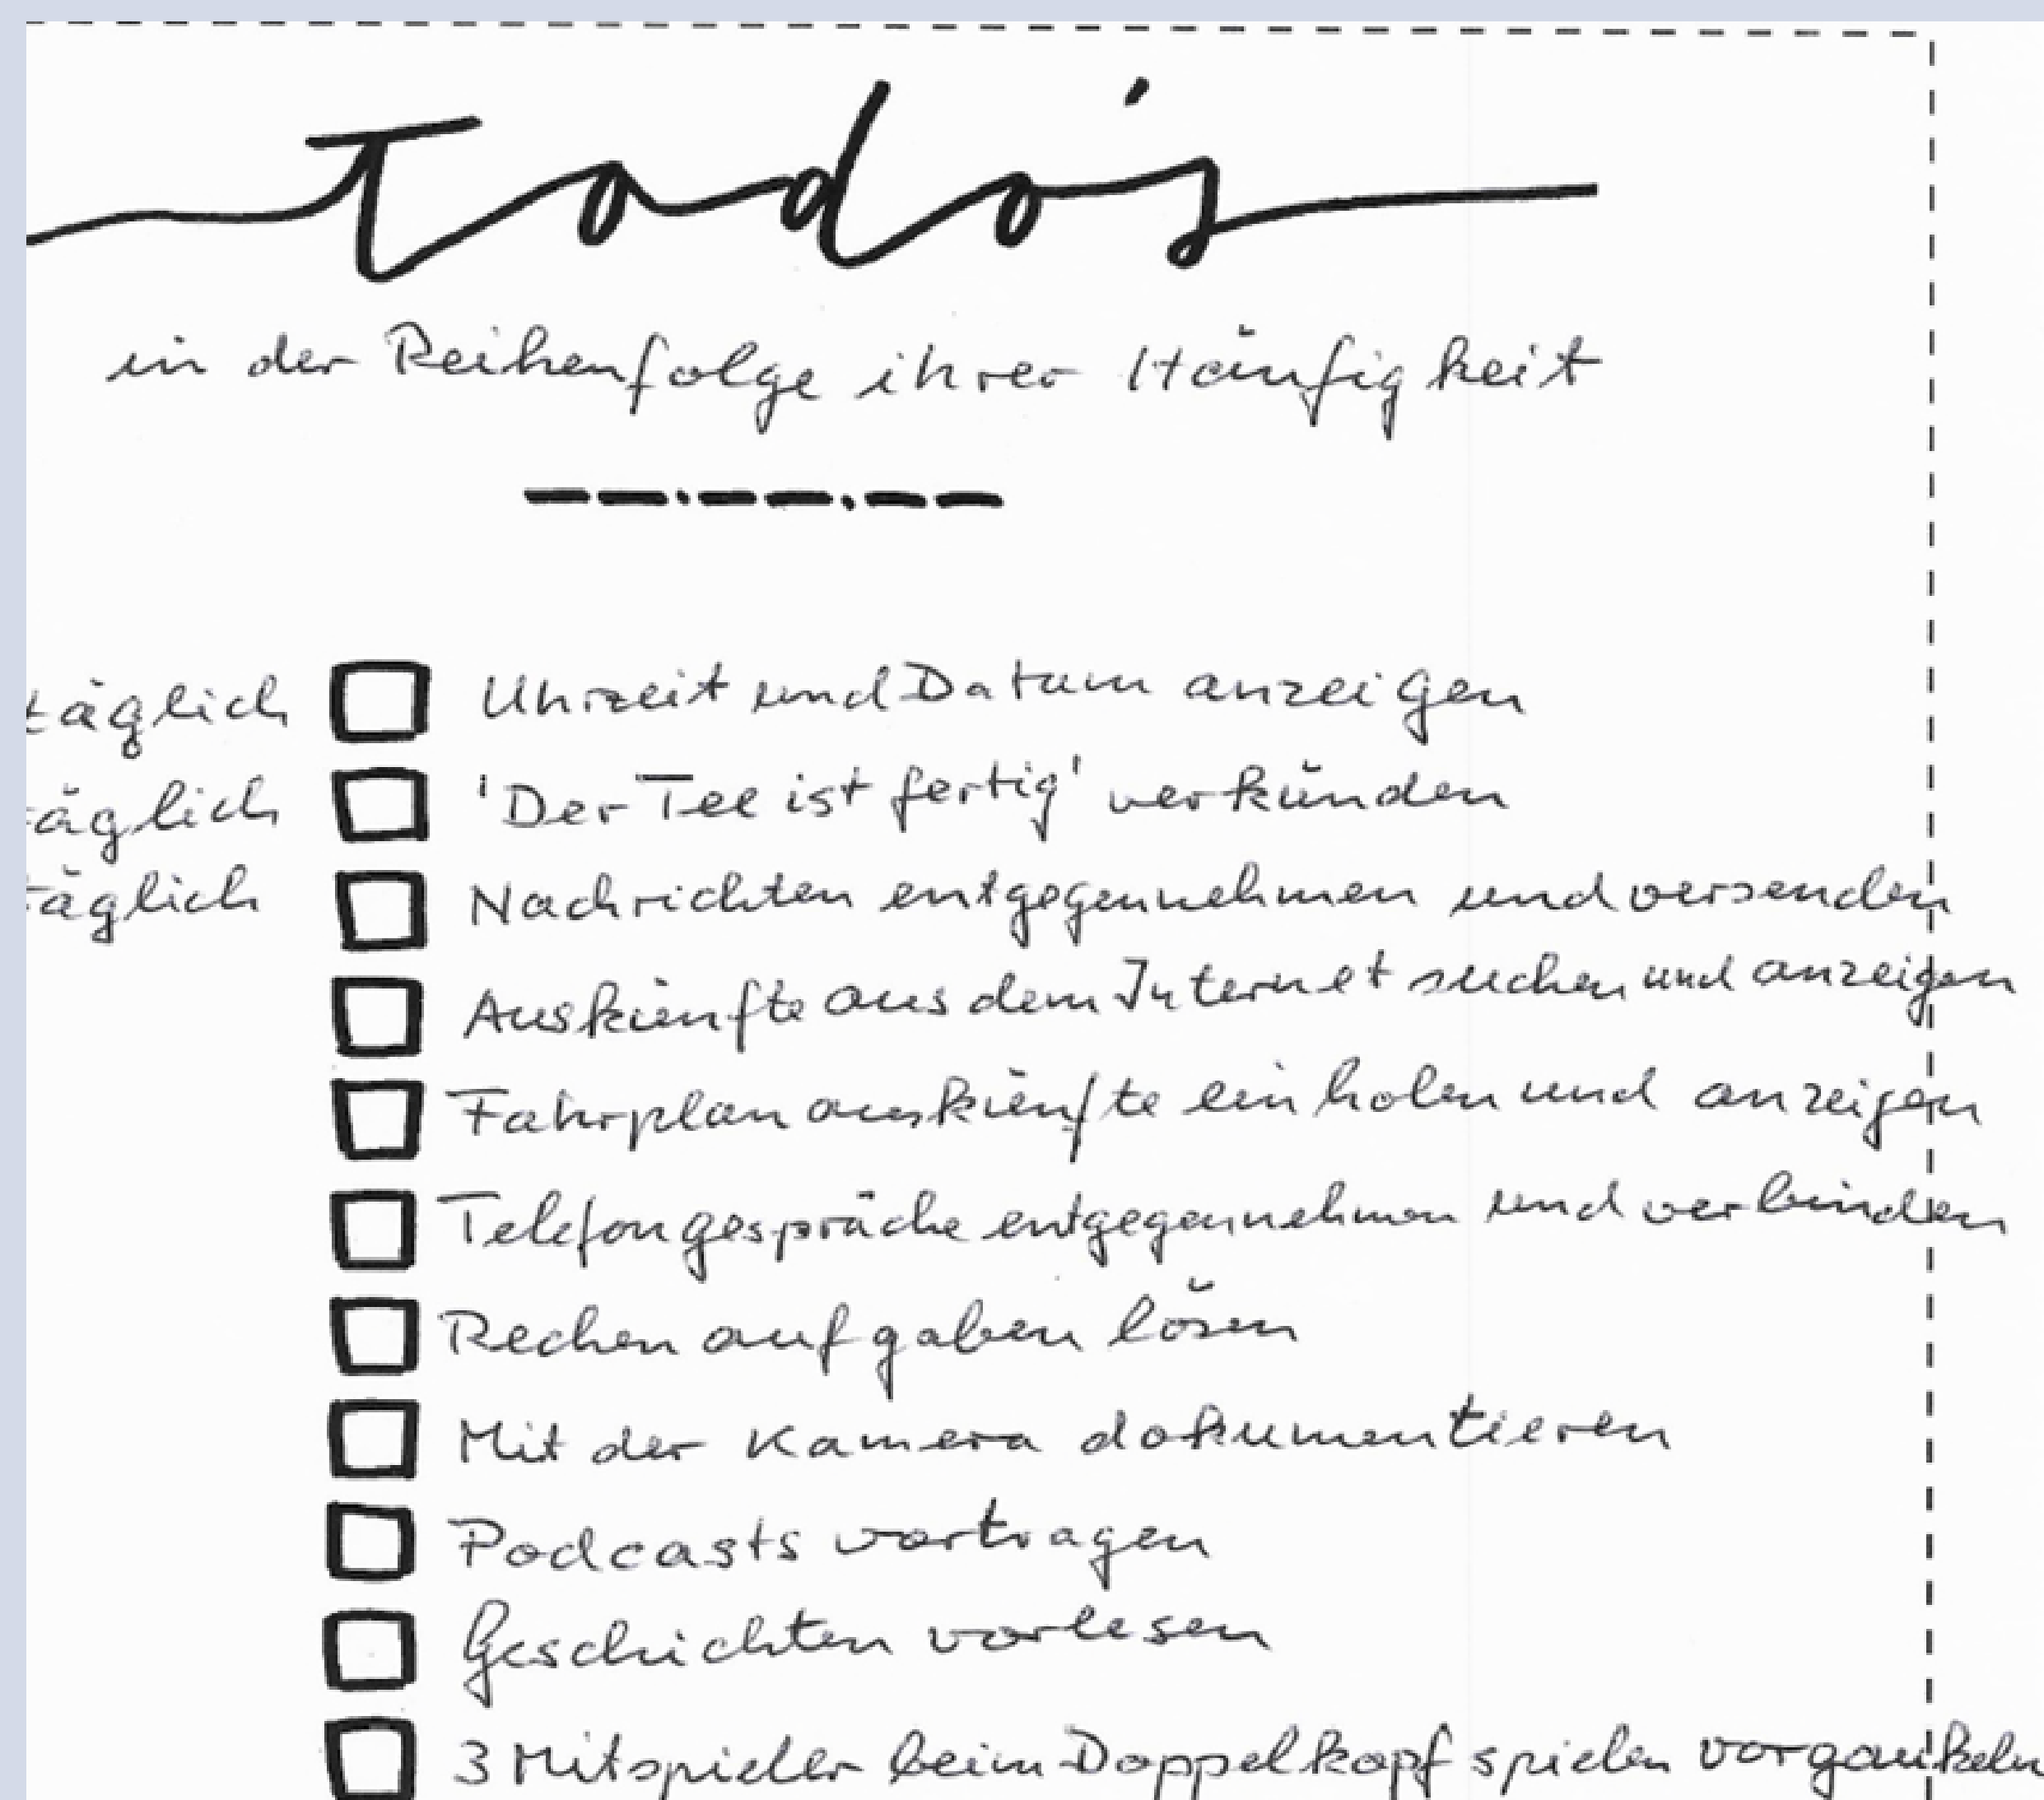 todo's
in der Reihenfolge ihrer Häufigkeit
täglich Uhrzeit und Datum anzeigen
täglich 'Der Tee ist fertig' verkünden
täglich Nachrichten entgegennehmen und versenden
Auskünfte aus dem Internet suchen und anzeigen
Fahrplanauskünfte einholen und anzeigen
Telefongespräche entgegennehmen und verbinden
Rechenaufgaben lösen
Mit der Kamera dokumentieren
Podcasts vortragen
Geschichten vorlesen
3 Mitspieler beim Doppelkopf spielen vorgaukeln